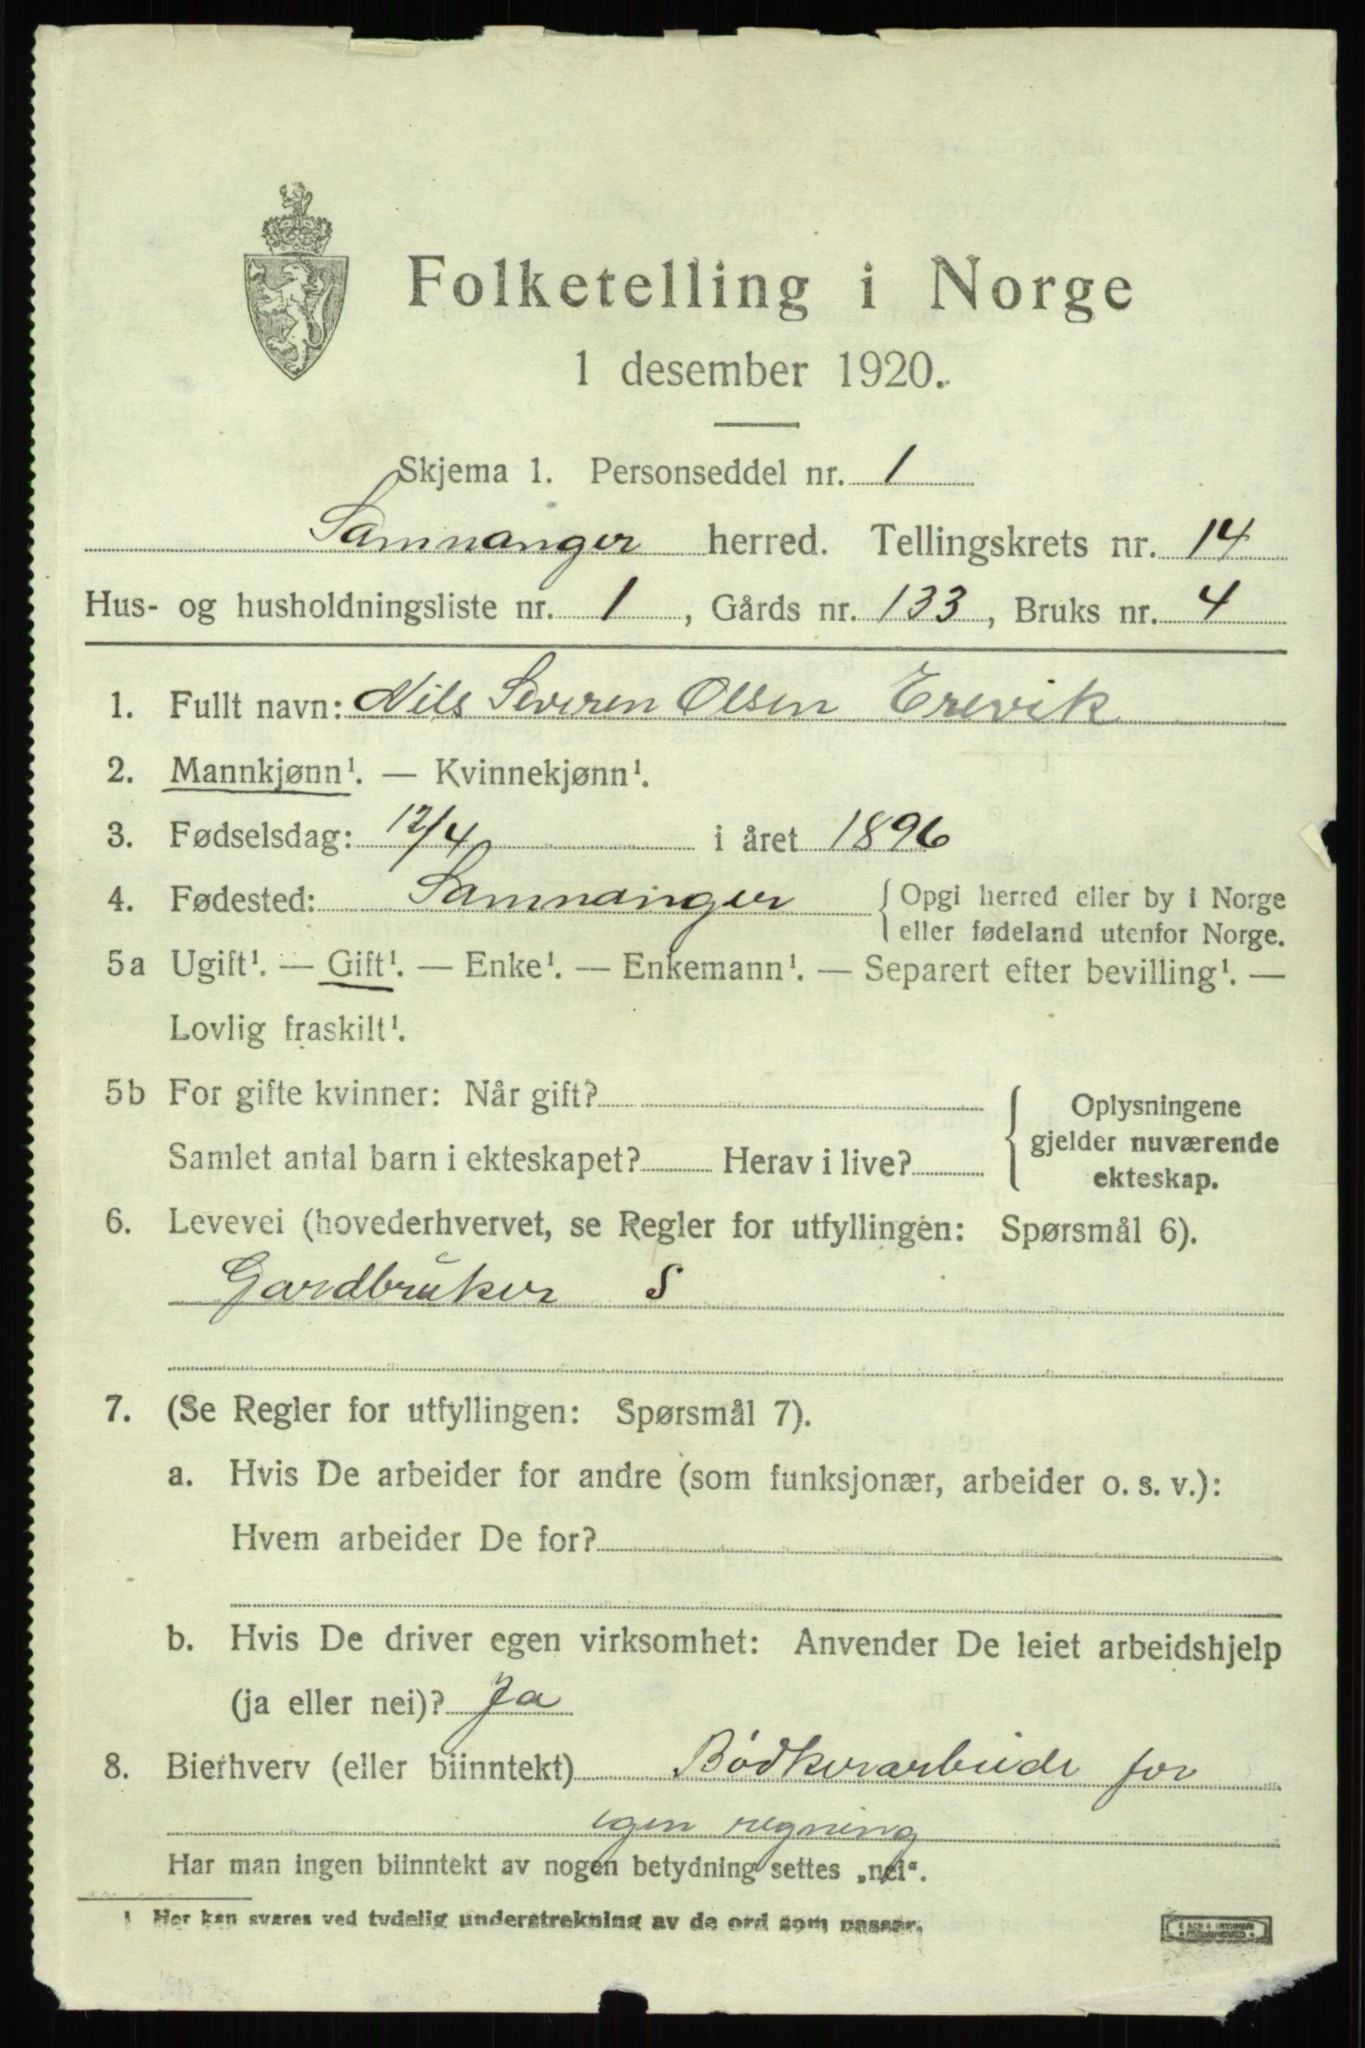 Folketelling i Norge
1 desember 1920.
Skjema 1. Personseddel nr. 1
Samnanger herred. Tellingskrets nr. 14
Hus- og husholdningsliste nr. 1, Gårds nr. 133, Bruks nr. 4
1. Fullt navn: Nils Severen Olsen Erevik
2. Mannkjønn¹. — Kvinnekjønn¹.
3. Fødselsdag: 12/4 i året 1896
4. Fødested: Samnanger { Opgi herred eller by i Norge
eller fødeland utenfor Norge.
5a Ugift¹. — Gift¹. — Enke¹. — Enkemann¹. — Separert efter bevilling¹. —
Lovlig fraskilt¹.
5b For gifte kvinner: Når gift?
Samlet antal barn i ekteskapet? Herav i live?
{ Oplysningene
gjelder nuværende
ekteskap.
6. Levevei (hovederhvervet, se Regler for utfyllingen: Spørsmål 6).
Gardbruker S
7. (Se Regler for utfyllingen: Spørsmål 7).
a. Hvis De arbeider for andre (som funksjonær, arbeider o. s. v.):
Hvem arbeider De for?
b. Hvis De driver egen virksomhet: Anvender De leiet arbeidshjelp
(ja eller nei)? Ja
8. Bierhverv (eller biinntekt) Bødkerarbeide for
egen regning
Har man ingen biinntekt av nogen betydning settes „nei“.
¹ Her kan svares ved tydelig understrekning av de ord som passer.